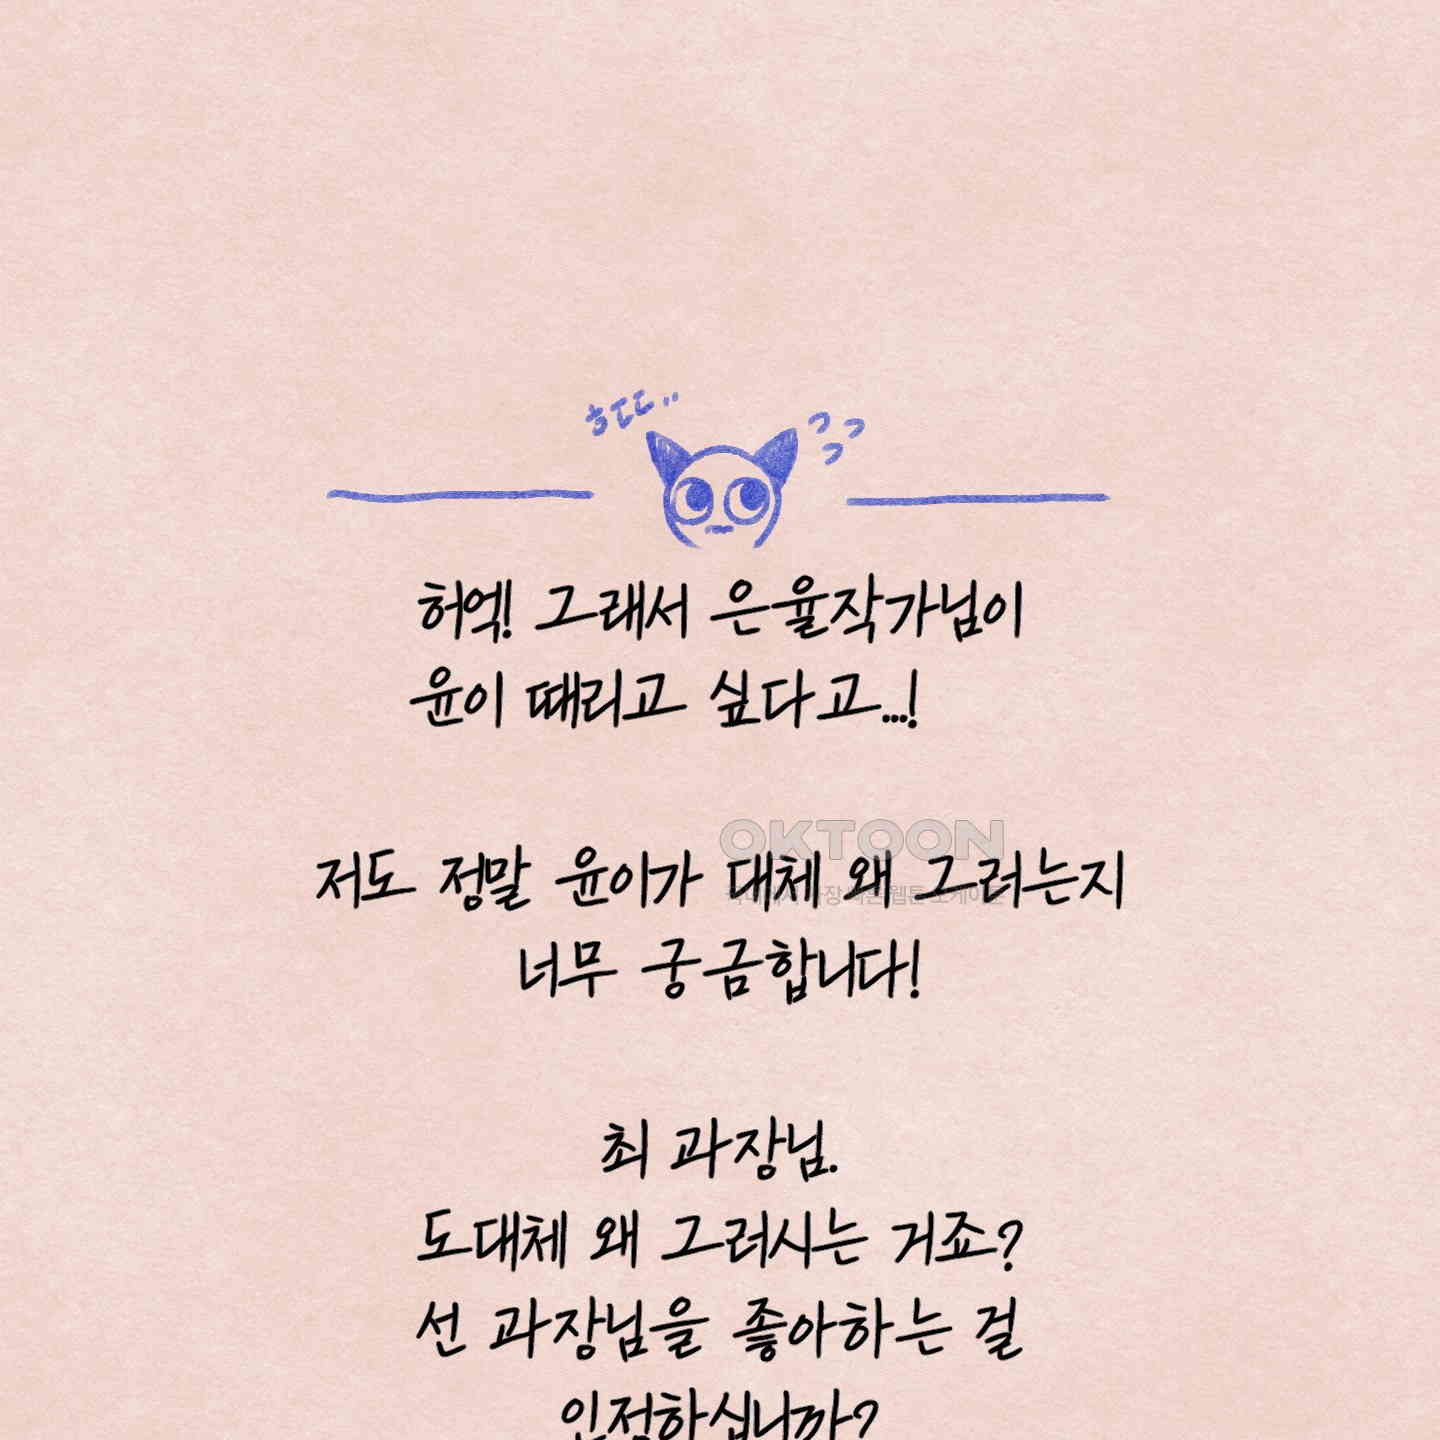 ㅎㄷㄷ..
ㄱㄱㄱ
허엑! 그래서 은율작가님이
윤이 때리고 싶다고...!
OKTOON
저도 정말 윤이가 대체 왜 그러는지
너무 궁금합니다!
최 과장님.
도대체 왜 그러시는 거죠?
선 과장님을 좋아하는 걸
인정하십니까?